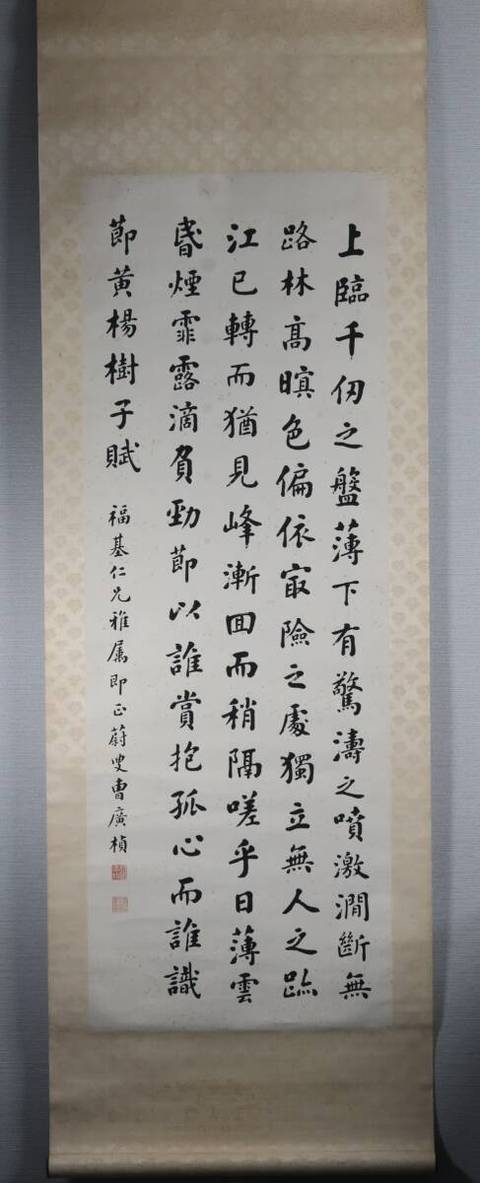 上臨千仞之盤薄下有驚濤之噴激澗斷無
路林高暝色偏依㝡險之處獨立無人之跡
江已轉而猶見峰漸回而稍隔嗟乎日薄雲
昏煙霏露滴負勁節以誰賞抱孤心而誰識
節黃楊樹子賦
福基仁兄雅屬即正蔚叟曹廣楨